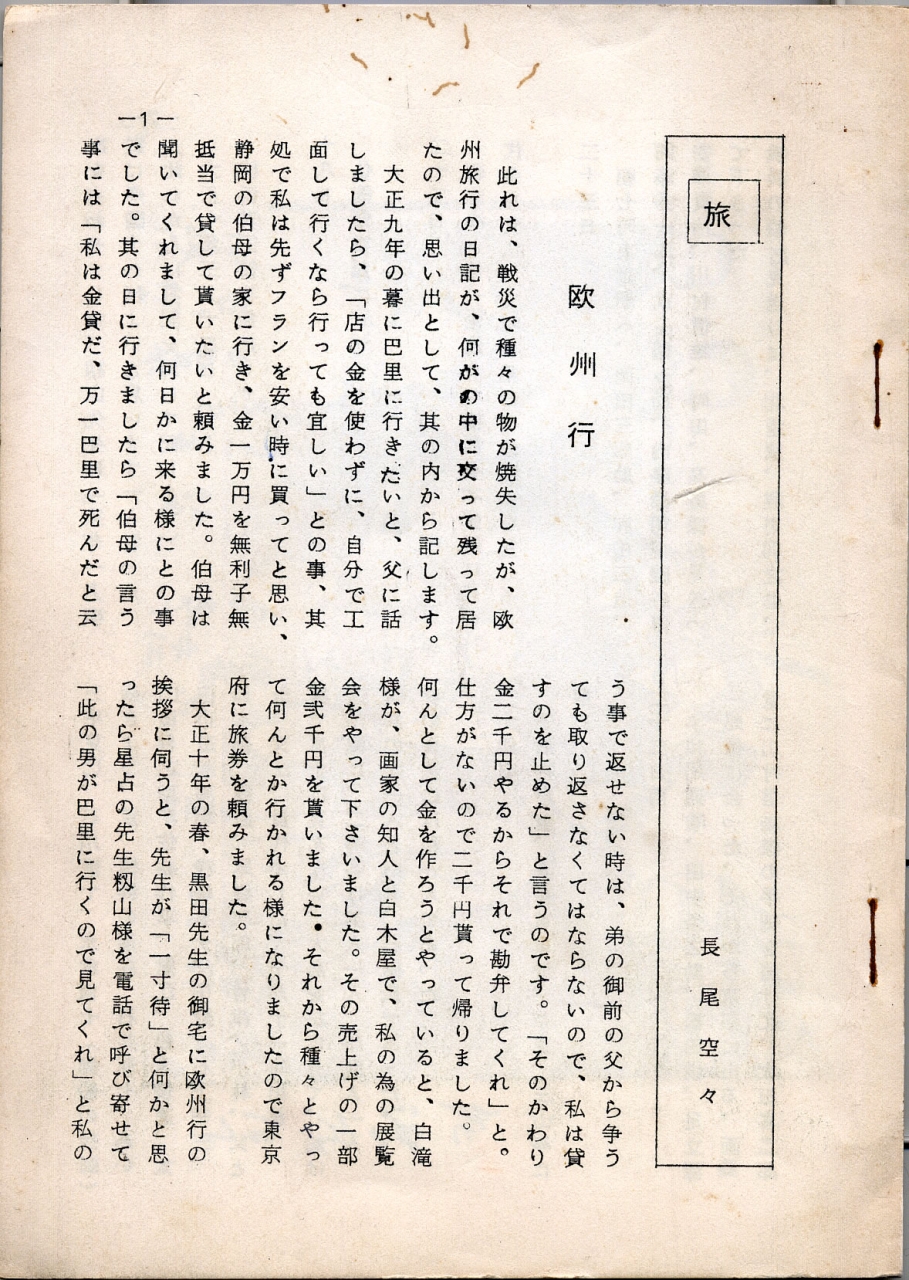 旅
長尾空々
欧州行
此れは、戦災で種々の物が焼失したが、欧
州旅行の日記が、何がの中に交って残って居
たので、思い出として、其の内から記します。
大正九年の暮に巴里に行きたいと、父に話
しましたら、「店の金を使わずに、自分で工
面して行くなら行っても宜しい」との事、其
処で私は先ずフランを安い時に買ってと思い、
静岡の伯母の家に行き、金一万円を無利子無
抵当で貸して貰いたいと頼みました。伯母は
聞いてくれまして、何日かに来る様にとの事
でした。其の日に行きましたら「伯母の言う
事には「私は金貸だ、万一巴里で死んだと云
う事で返せない時は、弟の御前の父から争う
ても取り返さなくてはならないので、私は貸
すのを止めた」と言うのです。「そのかわり
金二千円やるからそれで勘弁してくれ」と。
仕方がないので二千円貰って帰りました。
何んとして金を作ろうとやっていると、白滝
様が、画家の知人と白木屋で、私の為の展覧
会をやって下さいました。その売上げの一部
金弐千円を貰いました。それから種々とやっ
て何んとか行かれる様になりましたので東京
府に旅券を頼みました。
大正十年の春、黒田先生の御宅に欧州行の
挨拶に伺うと、先生が「一寸待」と何かと思
ったら星占の先生籾山様を電話で呼び寄せて
「此の男が巴里に行くので見てくれ」と私の
—1—